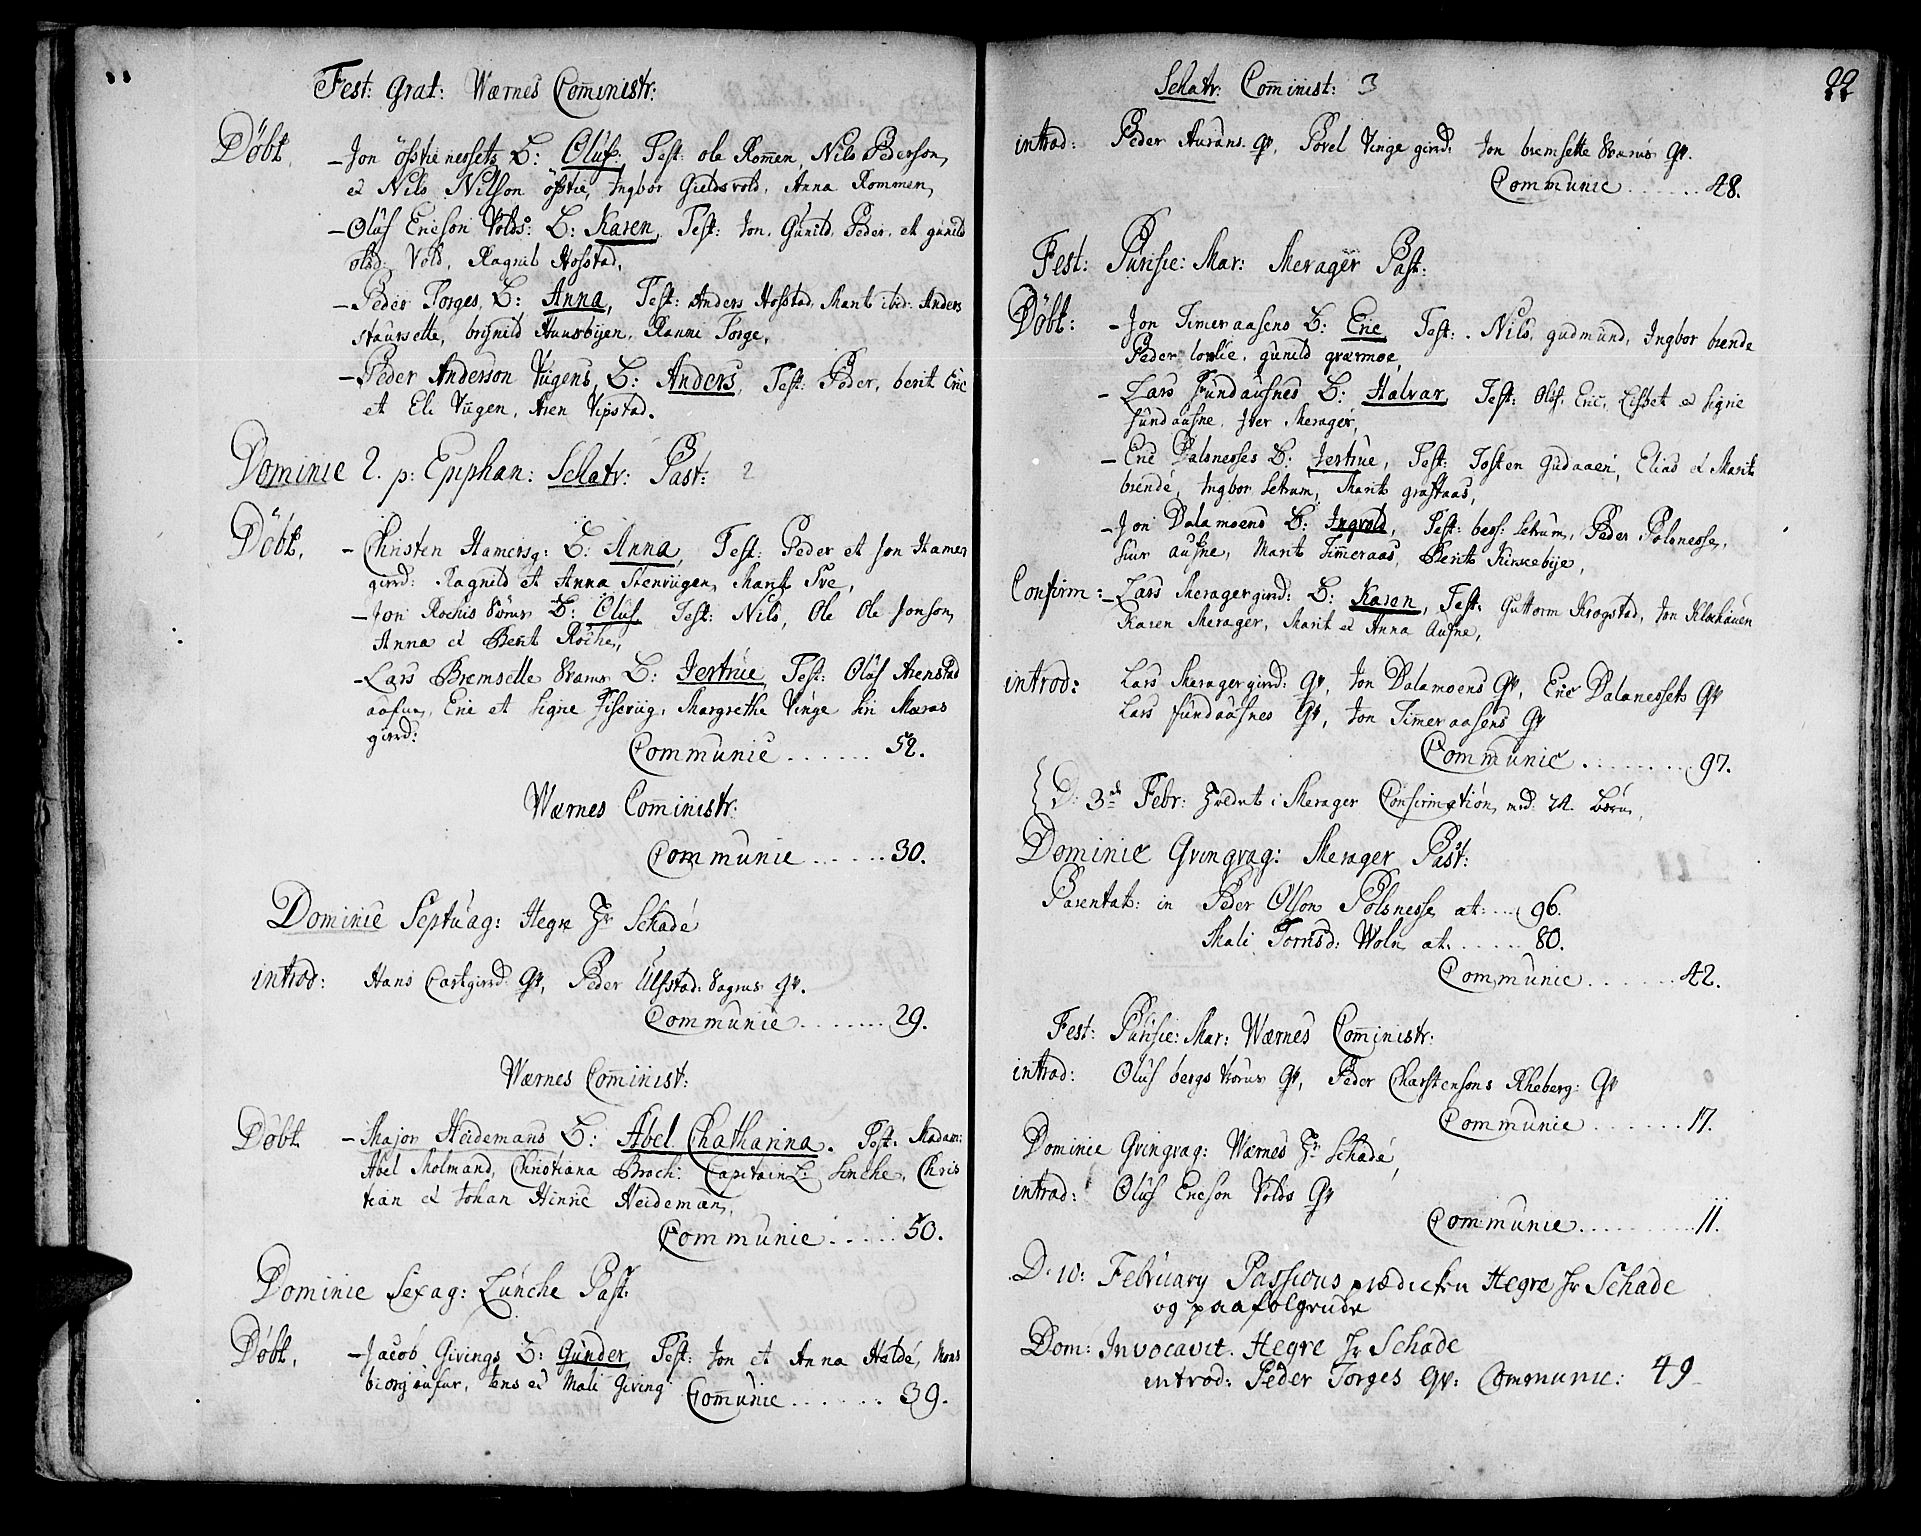 Fest: Grat: Wærnes Com̄inistr:
Döbt. – Jon östienessets B: Oluf. Test: ole Rom̄en, Nils Pederson,
et Nils Nilson östie, Ingbor Gieldsvold, Anna Rommen,
– Oluf Ericson Volds: B: Karen, Test: Jon, Gunild, Peder, et gunild
olsd: Vold, Ragnil Hofstad,
– Peder Torges, B: Anna, Test: Anders Hofstad, Marit ibid: Anders
staursette, brÿnild Huusbÿen, Ranni Torge,
– Peder Anderson Vügens, B: Anders, Test: Peder, berit Eric
et Eli Vügen, Aren Vipstad.
Dominic 2. p: Epiphan: Selatr: Past: 2
Döbt. – Christen Hamersg: B: Anna, Test: Peder et Jon Hamer
gierd: Ragnild et Anna Stenvügen, Marit Tve,
– Jon B: Oluf, Test: Nils, Ole Ole Jonson,
Anna et Berit
– Lars Bremsette B: Jertrüe, Test: Oluf Arenstad
Eric et Signe Fiservig, Margrethe Vinge Siri Mæras
gierd:
Communic . . . . . . 52.
Wærnes Com̄inistr:
Communic . . . . . . 30.
Dominic Septuag: Hegre Hr Schade
introd: Hans Castgierd: Qv, Peder Ulfstad: Qv.
Communic . . . . . . . 29.
Wærnes Com̄inist:
Döbt – Major Heidemans B: Abel Chatharina. Test: Madam:
Abel Molmand, Christiana Broch: Capitain L: Sinche, Chris
tian et Johan Hinric Heideman,
Communic . . . . . 50.
Dominic Sexag: Lünche Past:
Döbt. – Jacob Givings B: Gunder, Test: Jon et Anna Halde, Mons
Jens et Mali Giving
Com̄unic . . . . . . . 39.
22
Selatr: Com̄inist: 3
introd: Peder Aurans Qv, Povel Vinge gierd: Jon bremsette Qv.
Communic . . . . . . 48.
Fest: Purific: Mar: Merager Past:
Döbt: – Jon Timeraasens B: Eric Test: Nils, gudmund, Ingbor brende
Peder gunild græsmoe,
– Lars Fundausnes B: Halvar, Test: Oluf, Eric, Lisbet et Signe
fundausne, Iver Merager,
– Eric Dalsnesses B: Jertrue, Test: Tosten Gudaaen, Elias et Marit
brende, Ingbor Setrum, Marit graftaas,
– Jon Dalamoens B: Ingvold, Test: Setrum, Peder Polsnesse,
Siur ausne, Marit Tim̄eraas, Berit Kirkebÿe,
Confirm: – Lars Meragergierd: B: Karen, Test: Guttorm Krogstad, Jon Klockauen
Karen Merager, Marit et Anna Ausne,
introd: Lars Meragergierd: Qv, Jon Dalamoens Qv, Eric Dalanessets Qv
Lars fundausnes Qv, Jon Tim̄eraasens Qv
Communic . . . . . . . . 97.
D: 3 Febr: i Merager Confirmation, med: 24. Børn,
Dominic Qvinqvag: Merager Past:
Parentat: in Peder Olson Polsnesse æt: . . 96.
Mali Tomsd: Woln æt: . . . . . . 80.
Communic . . . . . . . 42.
Fest: Purific: Mar: Wærnes Com̄inistr:
introd: Oluf bergs Qv, Peder Charstensons Rheberg: Qv
Communic . . . . . . . 17.
Dominic Qvinqvag: Wærnes Hr Schade,
introd: Oluf Ericson Volds Qv
Communic . . . . . . . . . 11.
D: 10: February Passions prædicken Hegre Hr Schade
og paafølgende
Dom: Invocavit. Hegre Hr Schade
introd: Peder Torges Qv: Communic: 49